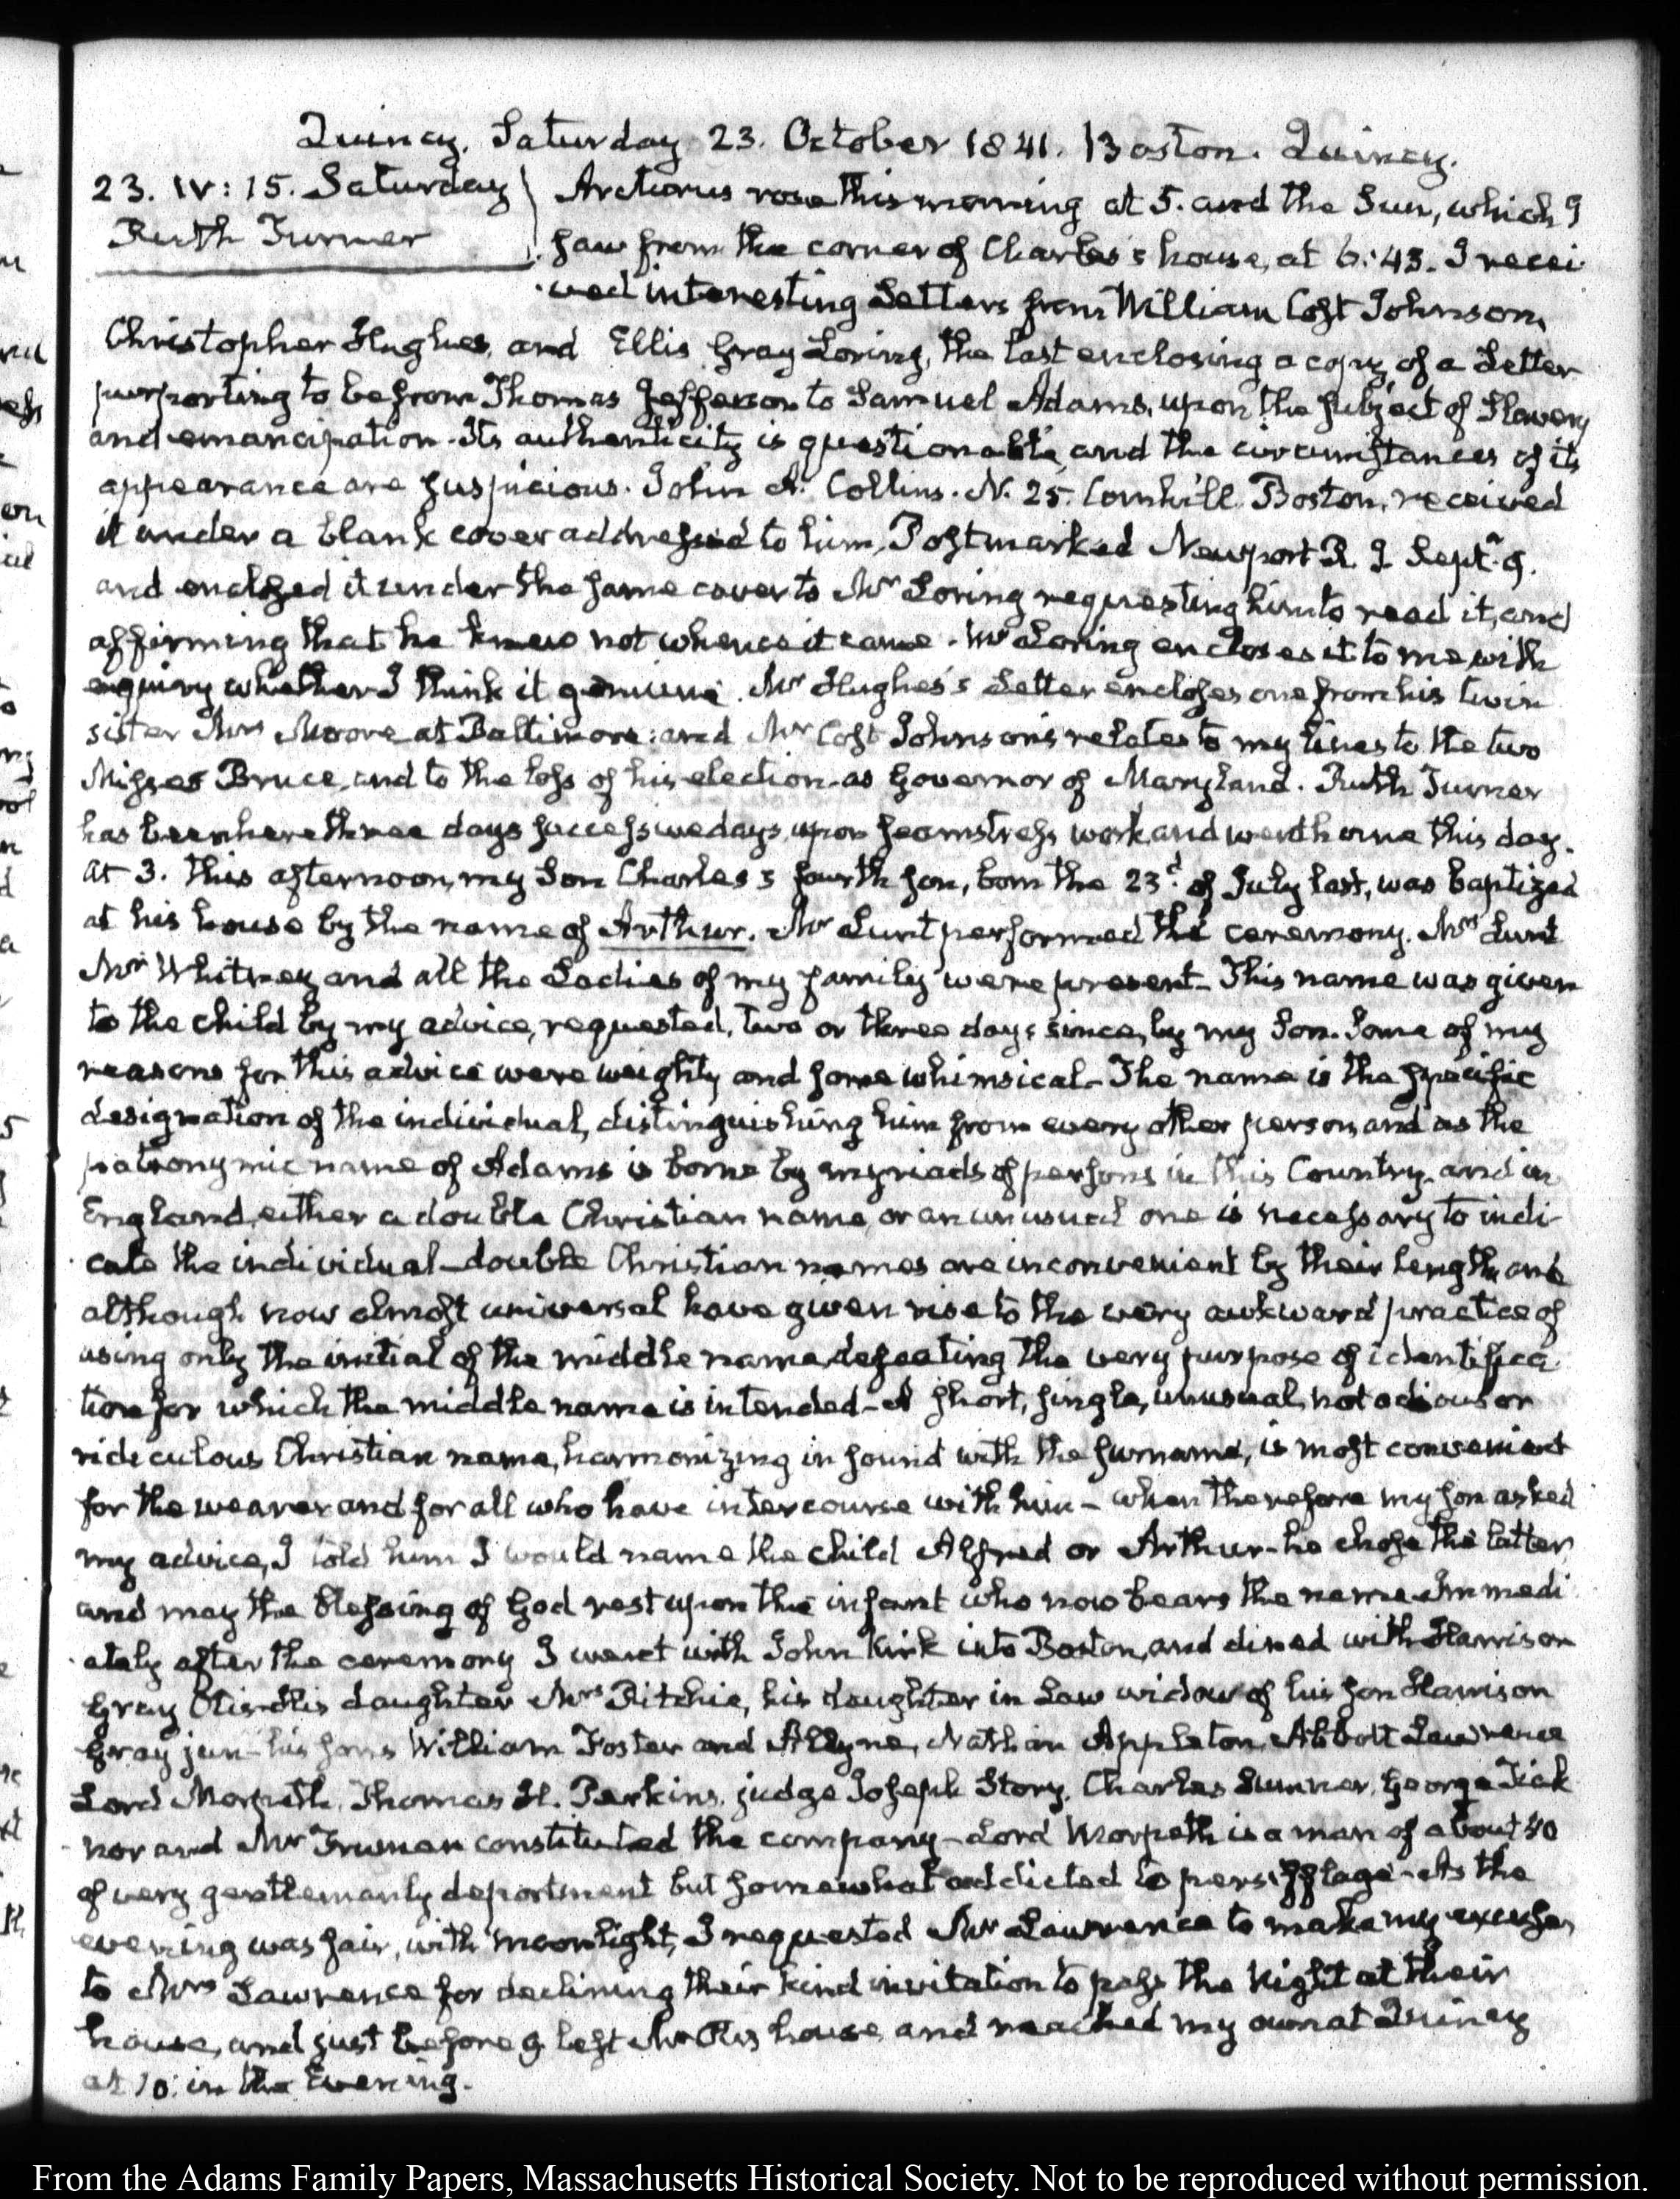 Quincy. Saturday 23. October 1841. Boston. Quincy.
23. IV: 15. Saturday
Ruth Turner
Arcturus rose this morning at 5. and the Sun, which I
saw from the corner of Charles's house, at 6:43. I recei
ved interesting Letters from William Cost Johnson,
Christopher Hughes, and Ellis Gray Loring, the last enclosing a copy of a Letter
purporting to be from Thomas Jefferson to Samuel Adams, upon the subject of Slavery
and emancipation. Its authenticity is questionable, and the circumstances of its
appearance are suspicious. John A. Collins. N. 25. Cornhill Boston, received
it under a blank cover addressed to him, Postmarked Newport R. I. Septr. 9.
and enclosed it under the same cover to Mr Loring requesting him to read it, and
affirming that he knew not whence it came. Mr Loring encloses it to me with
enquiry whether I think it genuine. Mr Hughes's Letter encloses one from his twin
sister Mrs Moore at Baltimore: and Mr Cost Johnson's relates to my lines to the two
Misses Bruce, and to the loss of his election as Governor of Maryland. Ruth Turner
has been here three days successive days, upon seamstress work and went home this day.
At 3. this afternoon, my Son Charles's fourth son, born the 23d of July last, was baptized
at his house by the name of Arthur. Mr Lunt performed the ceremony. Mrs Lunt
Whitney and all the Ladies of my family were present- This name was given
to the child by my advice, requested, two or three days since, by my Son. Some of my
reasons for this advice were weighty and some whimsical- The name is the specific
designation of the individual, distinguishing him from every other person, and as the
patronymic name of Adams is borne by myriads of persons in this Country, and in
England, either a double Christian name, or an unusual one is necessary to indi
cate the individual- double Christian names are inconvenient by their length, and
although now almost universal have given rise to the very awkward practice of
using only the initial of the middle name, defeating the very purpose of identifica
tion for which the middle name is intended- A short, single, unusual, not odious or
ridiculous Christian name, harmonizing in sound with the surname, is most convenient
for the wearer and for all who have intercourse with him- when therefore my son asked
my advice, I told him I would name the child Alfred or Arthur- he chose the latter,
and may the blessing of God rest upon the infant who now bears the name. Immedi
ately after the ceremony I went with John Kirk into Boston, and dined with Harrison
Gray Otis- His daughter Mrs Ritchie, his daughter in Law widow of his son Harrison
Gray jun- his sons William Foster and Allyne, Nathan Appleton, Abbott Lawrence
Lord Morpeth, Thomas H. Perkins, judge Joseph Story, Charles Sumner, George Tick
nor and Mr constituted the company- Lord Morpeth is a man of about 40
of very gentlemanly deportment but somewhat addicted to persifflage- As the
evening was fair, with moonlight, I requested Mr Lawrence to make my excuses
to Mrs Lawrence for declining their kind invitation to pass the Night at their
house, and just before 9 left Mr Otis house and reached my own at Quincy
at 10: in the Evening.
From the Adams Family Papers, Massachusetts Historical Society. Not to be reproduced without permission.